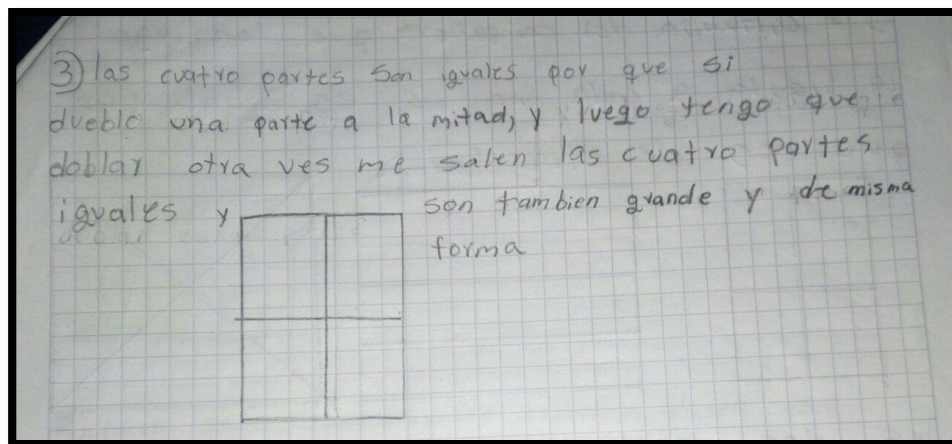 3) las cuatro partes son iguales por que si
dueblo una parte a la mitad, y luego tengo que
doblar otra ves me salen las cuatro partes
iguales y son tambien grande y de misma
forma